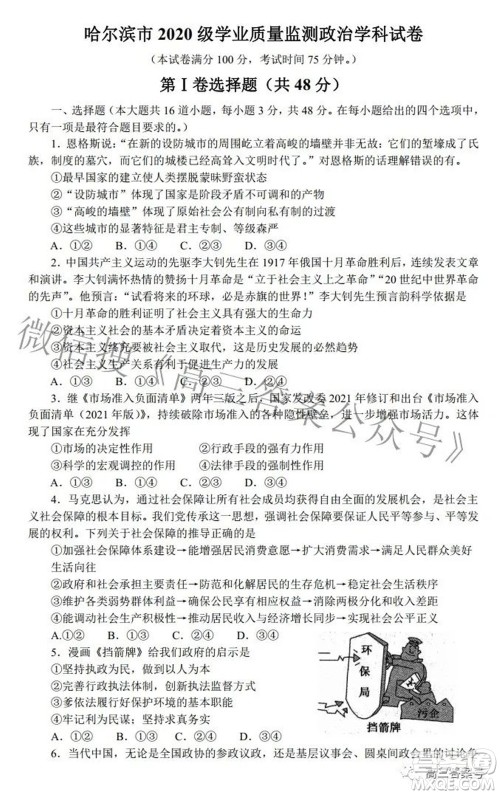 哈尔滨市 2020 级学业质量监测政治学科试卷
（本试卷满分 100 分，考试时间 75 分钟。）
第Ⅰ卷选择题（共 48 分）
一、选择题（本大题共 16 道小题，每小题 3 分，共 48 分。在每小题给出的四个选项中，
只有一项是最符合题目要求的。）
1．恩格斯说：“在新的设防城市的周围屹立着高峻的墙壁并非无故：它们的堑壕成了氏
族制度的墓穴，而它们的城楼已经高耸入文明时代了。”对恩格斯的话理解错误的有。
①最早国家的建立使人类摆脱蒙昧野蛮状态
②“设防城市”体现了国家是阶段矛盾不可调和的产物
③“高峻的墙壁”体现了原始社会公有制向私有制的过渡
④这些城市的显著特征是君主专制、等级森严
A．①② B．①④ C．②③ D．③④
2．中国共产主义运动的先驱李大钊先生在 1917 年俄国十月革命胜利后，连续发表文章
和演讲。李大钊满怀热情的赞扬十月革命是“立于社会主义上之革命”“20 世纪中世界革命
的先声”。他预言：“试看将来的环球，必是赤旗的世界！”李大钊先生预言的科学依据是
①十月革命的胜利证明了共产主义具有强大的生命力
②资本主义社会的基本矛盾发展决定了资本主义的命运
③资本主义终究会被社会主义取代，这是历史发展的必然趋势
④社会主义生产关系有利于促进生产力的发展
A．①② B．①④ C．②③ D．③④
3．继《市场准入负面清单》两年三版之后，国家发改委 2021 年修订和出台《市场准入
负面清单（2021 年版）》，持续破除市场准入的各种隐性壁垒，进一步增强市场活力。这体
现了国家在充分发挥
①市场的决定性作用 ②行政手段的强有力作用
③科学的宏观调控的作用 ④法律手段的强制性作用
A．①② B．①③ C．②④ D．③④
4．马克思认为，通过社会保障让所有社会成员均获得全面的发展机会，是共产主义社
会保障的根本目标。我们党传承这一思想，强调社会保障要保证人民平等参与、平等发
展的权利。下列关于社会保障的推导正确的是
①加强社会保障体系建设→能增强居民消费意愿→扩大消费需求→满足人民美好
生活需要
②政府和社会承担居民的基本生活→居民安居乐业→稳定社会生活秩序
③政府重视社会保障→推动城乡协调发展→缩小收入差距
④能调动社会生产积极性→推动社会发展→实现社会公平正义
A.①② B.①③ C. ②④ D. ③④
5．漫画《挡箭牌》给我们政府的启示是
①坚持执政为民，做到以人为本
②完善行政制度，创新执法监督方式
③爹依法履行好政府职能，提高服务水平
④牢记利民为民谋；坚持为人民服务
A．①② B．①③ C．②④ D．③④
环保局
污企
挡箭牌
6．当代中国，无论是全国政协的参政议政，还是基层议事会、圆桌间政会里的讨论争
微信搜《高三答案公众号》
高三答案号